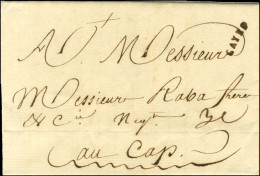 A Messieurs
Messieurs Raba frère
& Cie Negt
au Cap.